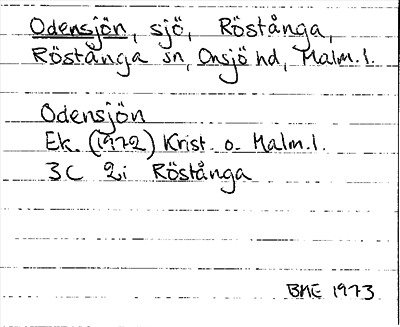 Odensjön, sjö, Röstånga,
Röstånga sn, Onsjö hd, Malm. l.
Odensjön
Ek. (1972) Krist. o. Malm. l.
3C 2i Röstånga
BME 1973